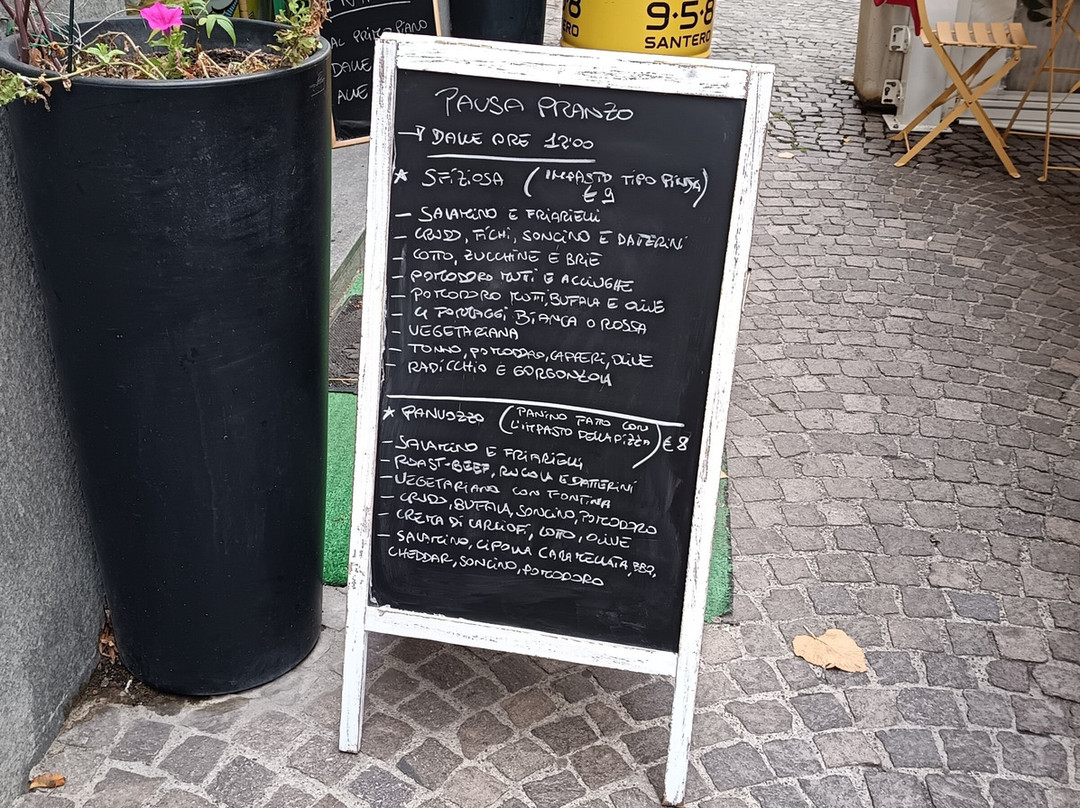 AL PRIMO PIANO
DALLE
ALLE
9·5·8
SANTERO
PAUSA PRANZO
→ DALLE ORE 12:00
* SFIZIOSA (IMPASTO TIPO PINSA)
€ 9
- SALAMINO E FRIARIELLI
- CRUDO, FICHI, SONCINO E DATTERINI
- COTTO, ZUCCHINE E BRIE
- POMODORO MUTI E ACCIUGHE
- POMODORO MUTI, BUFALA E OLIVE
- 4 FORMAGGI BIANCA O ROSSA
- VEGETARIANA
- TONNO, POMODORO, CAPPERI, OLIVE
- RADICCHIO E GORGONZOLA
* PANUOZZO (PANINO FATTO CON
L'IMPASTO DELLA PIZZA) € 8
- SALAMINO E FRIARIELLI
- ROAST-BEEF, RUCOLA E DATTERINI
- VEGETARIANO CON FONTINA
- CRUDO, BUFFALA, SONCINO, POMODORO
- CREMA DI CARCIOFI, COTTO, OLIVE
- SALAMINO, CIPOLLA CARAMELLATA, BBQ,
CHEDDAR, SONCINO, POMODORO